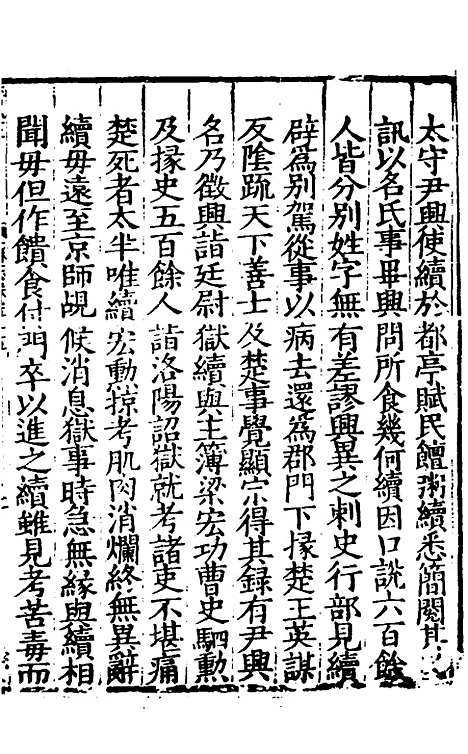 太守尹興使續於都亭賦民饘粥續悉簡閱其民
訊以名氏事畢興問所食幾何續因口說六百餘
人皆分別姓字無有差謬興異之刺史行部見續
辟為別駕從事以病去還為郡門下掾楚王英謀
反陰疏天下善士及楚事覺顯宗得其録有尹興
名乃徵興詣廷尉獄續與主簿梁宏功曹史駟勳
及掾史五百餘人詣洛陽詔獄就考諸吏不堪痛
楚死者太半唯續宏勳掠考肌肉消爛終無異辭
續母遠至京師覘候消息獄事時急無緣與續相
聞母但作饋食付門卒以進之續雖見考苦毒而